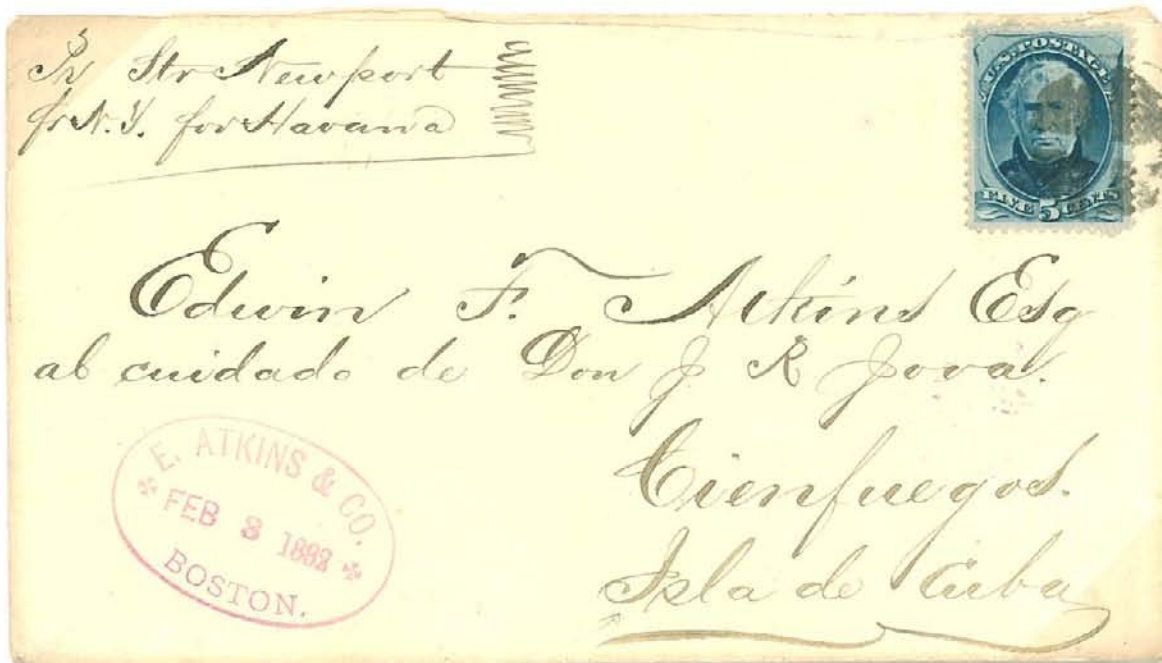 Pr Str Newport
fr N.Y. for Havana
U.S. POSTAGE
FIVE 5 CENTS
Edwin F. Atkins Esq
al cuidado de Don J R Jova.
Cienfuegos.
Isla de Cuba
E. ATKINS & CO.
FEB 3 1882
BOSTON.